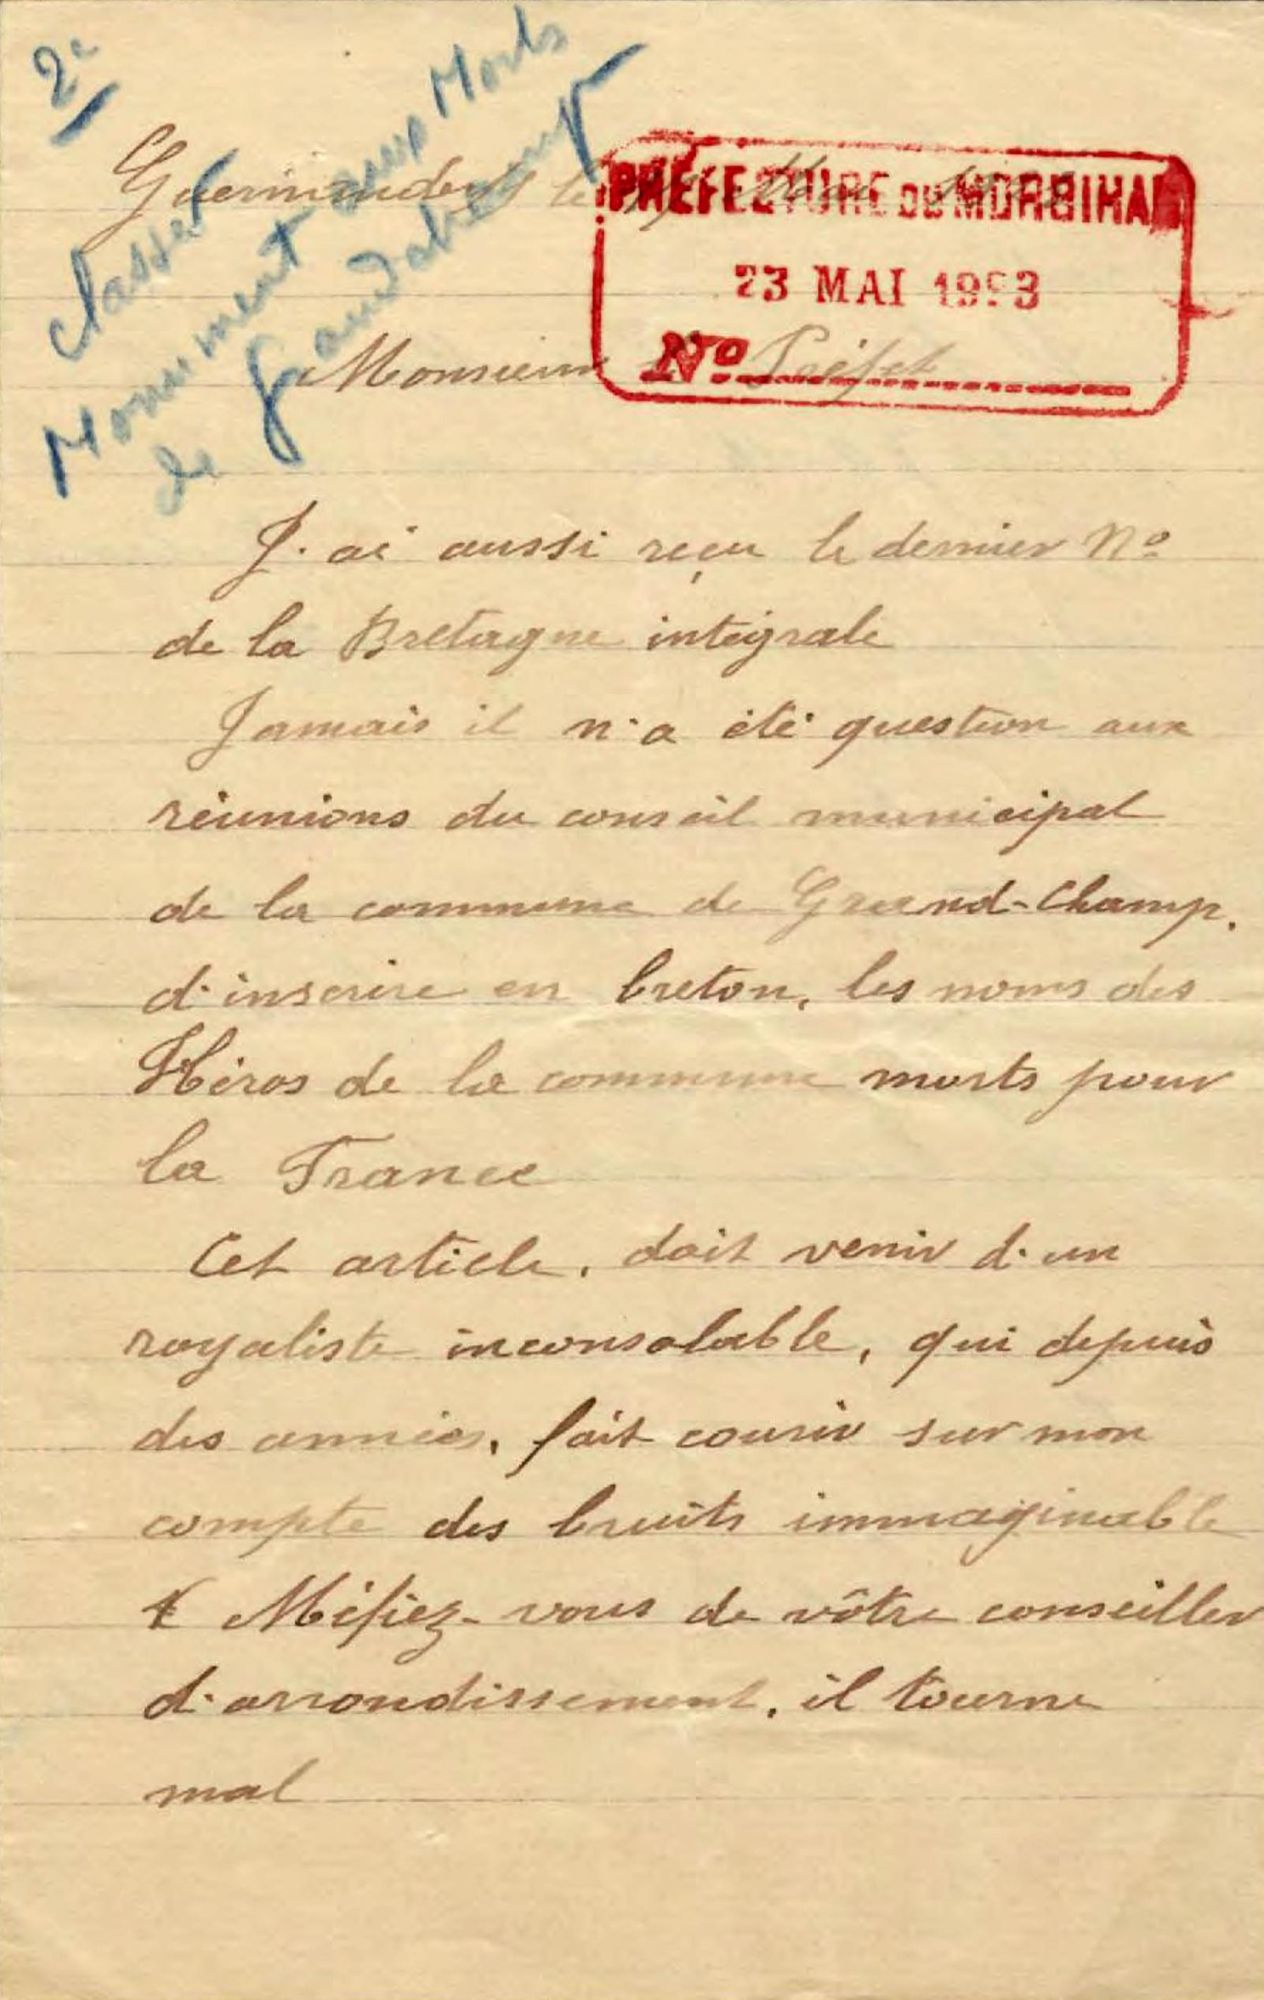 2e
Classer
Monument aux Morts
de Grandchamp
le Mai
PREFECTURE DU MORBIHAN
23 MAI 1923
No
Monsieur Le Préfet
J. ai aussi reçu le dernier No
de la Bretagne intégrale
Jamais il n'a été question aux
réunions du conseil municipal
de la commune de Grand-Champ.
d'inscrire en breton, les noms des
Héros de la commune morts pour
la France
Cet article, doit venir d'un
royaliste inconsolable, qui depuis
des années, fait courir sur mon
compte des bruits immaginable
Méfiez-vous de vôtre conseiller
d'arrondissement, il tourne
mal